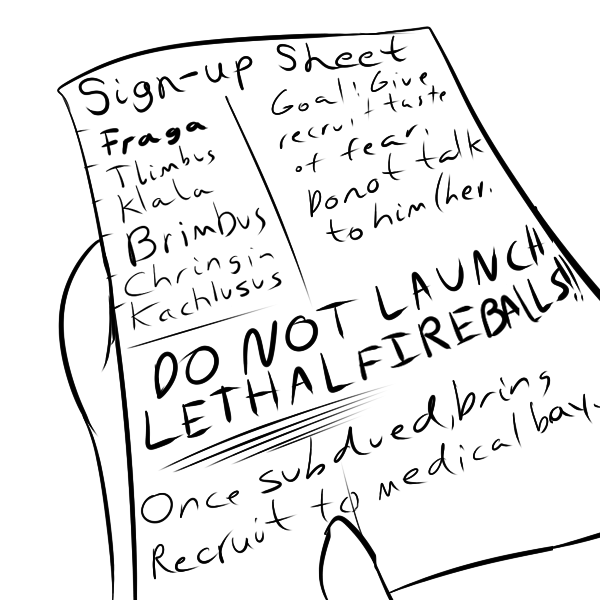 Sign-up Sheet
Fraga
Tlimbus
Klala
Brimbus
Chringin
Kachlusus
Goal: Give
recruit taste
of fear.
Do not talk
to him/her.
DO NOT LAUNCH
LETHAL FIREBALLS!!
Once subdued, bring
Recruit to medical bay.